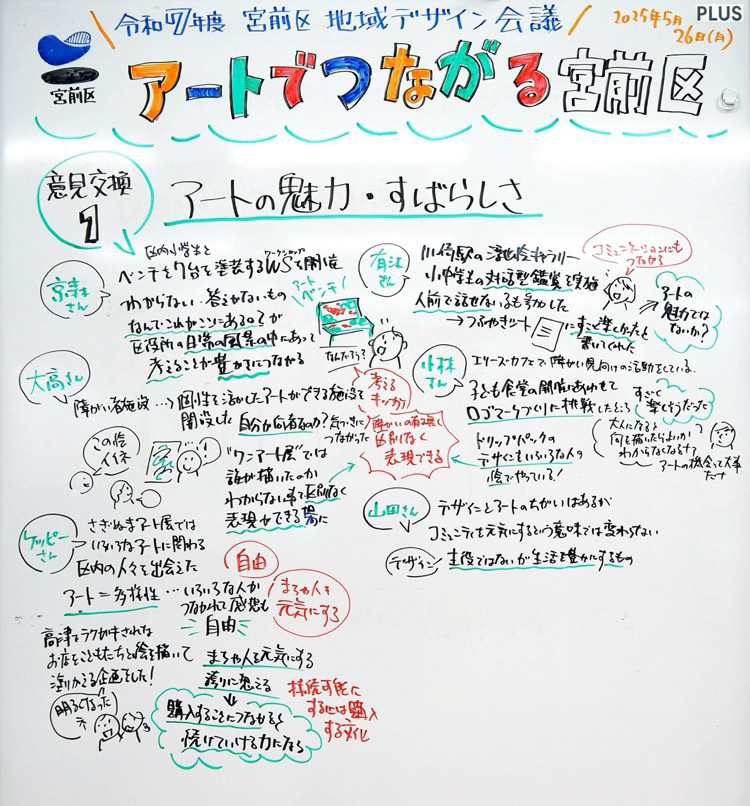 令和7年度 宮前区 地域デザイン会議
2025年5月
26日(月)
PLUS
宮前区
アートでつながる宮前区
意見交換
1
アートの魅力・すばらしさ
さん
区内小学生と
ワークショップ
ベンチを7台を塗装するWSを開催
わからない 答えがないもの
なんでこれがここにある？が
区役所の日常の風景の中にあって
考えることが豊かさにつながる
アート
ベンチ！
なんだろう？
考える
キッカケ
有江
さん
川崎駅の ギャラリー
小中学生の対話型鑑賞を実施
人前で話せない子も参加した
→つぶやきシート
にすごく楽しかったと
書いてくれた
コミュニケーションにも
つながる
アートの
魅力では
ないか？
大高さん
障がい者施設…→個性を活かしたアートができる施設を
開設した 自分が何者なのか？気づきに
つながった
この絵
イイネ
"ワンアート展"では
誰が描いたのか
わからない 区別なく
表現ができる場に
障がいの有無
区別なく
表現できる
小林
さん
エリーズ・カフェで、障がい児向けの活動をしている。
子ども食堂の開催にあわせて
ロゴマークづくりに挑戦したところ
すごく
楽しそうだった
ドリップパックの
デザインもいろいろな人の
絵でやっている！
大人になると
何を描いたらよいか
わからなくなるナ
アートの機会って大事
だナ
山田さん
デザインとアートのちがいはあるが
コミュニティを元気にするという意味では変わらない
デザイン
主役ではないが生活を豊かにするもの
ケッピー
さん
さぎぬまアート展では
いろいろなアートに関わる
区内の人々と出会えた
アート＝多様性…いろいろな人が
つながれて感想も
自由
自由
まちや人を
元気にする
高津でラクガキされた
お店をこどもたちと絵を描いて
塗りかえる企画をした！
明るくなった
ネ
まちや人を元気にする
誇りに思える
購入することにつながると
続けていける力になる
持続可能に
するには購入
する文化